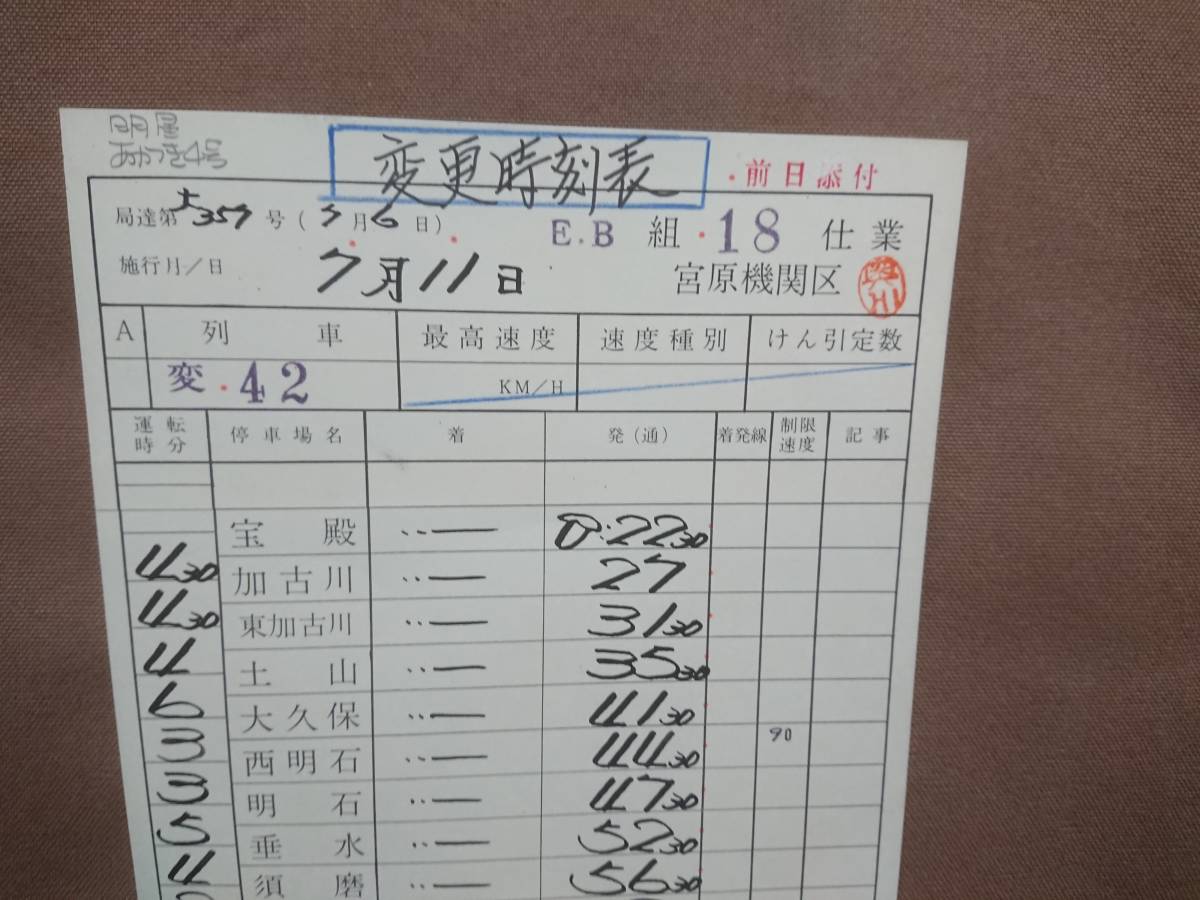 明星
あかつき4号
変更時刻表
・前日添付
局達第 357 号 ( 7月 6日)
E.B 組・18 仕業
施行月/日 7月11日
宮原機関区
A 列車 最高速度 速度種別 けん引定数
変・42 KM/H
運転時分 停車場名 着 発(通) 着発線 制限速度 記事
宝殿 ‥― 0:22 30
4 30
加古川 ‥― 27
4 30
東加古川 ‥― 31 30
4
土山 ‥― 35 30
6
大久保 ‥― 41 30
3 90
西明石 ‥― 44 30
3
明石 ‥― 47 30
5
垂水 ‥― 52 30
4
須磨 ‥― 56 30